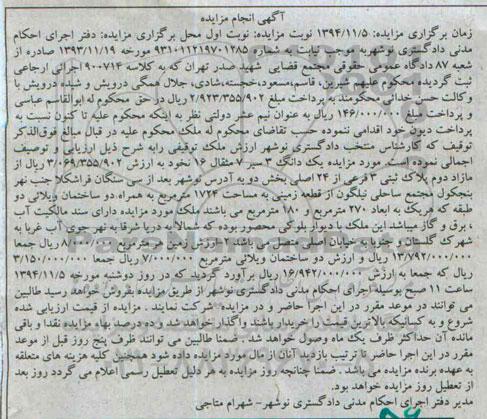 آگهی انجام مزایده
زمان برگزاری مزایده: ۱۳۹۴/۱۱/۵ نوبت مزایده: نوبت اول محل برگزاری مزایده: دفتر اجرای احکام
مدنی دادگستری نوشهربه موجب نیابت به شماره ۹۳۱۰۱۱۲۱۹۷۰۱۲۸۵ مورخه ۱۳۹۳/۱۱/۱۹ صادره از
شعبه ۸۷ دادگاه عمومی حقوقی مجتمع قضایی شهید صدر تهران که به کلاسه ۹۰۰۷۱۴ اجرائی ارجاعی
ثبت گردیده محکوم علیهم شیرین، قاسم،مسعود،خجسته،شادی، جلال همگی درویش و شیده درویش با
وکالت حسن خدائی محکومند به پرداخت مبلغ ۲/۹۲۳/۳۵۵/۹۰۲ ریال در حق محکوم له ابوالقاسم عباسی
و پرداخت مبلغ ۱۴۶/۰۰۰/۰۰۰ ریال به عنوان نیم عشر دولتی نظر به اینکه محکوم علیه تا کنون نسبت به
پرداخت دیون خود اقدامی ننموده حسب تقاضای محکوم له ملک محکوم علیه در قبال مبالغ فوق‌الذکر
توقیف که کارشناس منتخب دادگستری نوشهر ارزش ملک توقیفی رابه شرح ذیل ارزیابی و توصیف
اجمالی نموده است. مورد مزایده یک دانگ ۳ سیر ۷ مثقال ۱۶ نخود به ارزش ۳/۰۶۹/۳۵۵/۹۰۲ ریال از
مازاد دوم پلاک ثبتی ۳ فرعی از ۲۴ اصلی بخش دو به آدرس نوشهر بعد از سی سنگان فراشکلا جنب نهر
بنجکول مجتمع ساحلی نیلگون از قطعه زمینی به مساحت ۱۷۲۴ مترمربع به همراه دو ساختمان ویلائی دو
طبقه که هریک به ابعاد ۲۷۰ مترمربع و ۱۸۰ مترمربع می باشند ملک مورد مزایده دارای سند مالکیت آب
، برق و گاز میباشد این ملک با دیوار بلوکی محصور بوده که شمالا به دریا شرقا به نهر جوی آب غربا به
شهرک گلستان و جنوبا به خیابان اصلی متصل می باشد . ارزش زمین مترمربعی ۸/۰۰۰/۰۰۰ ریال جمعا
۱۳/۷۹۲/۰۰۰/۰۰۰ ریال و ارزش دو ساختمان ویلائی مترمربعی ۷/۰۰۰/۰۰۰ ریال جمعا ۳/۱۵۰/۰۰۰/۰۰۰
ریال که جمعا به ارزش ۱۶/۹۴۲/۰۰۰/۰۰۰ ریال برآورد گردید که در روز دوشنبه مورخه ۱۳۹۴/۱۱/۵
ساعت ۱۱ صبح بوسیله اجرای احکام مدنی دادگستری نوشهر از طریق مزایده بفروش خواهد رسید طالبین
می توانند در موعد مقرر در این اجرا حاضر و در مزایده شرکت نمایند . مزایده از قیمت ارزیابی شده
شروع و به کسانیکه بالاترین قیمت را خریدار باشند واگذار خواهد شد و ده درصد بهاء مزایده نقدا و باقی
مانده آن حداکثر ظرف یک ماه وصول خواهد شد . ضمنا طالبین می توانند ظرف پنج روز قبل از موعد
مقرر در این اجرا حاضر تا ترتیب بازدید آنان از مال مورد مزایده داده شود همچنین کلیه هزینه های متعلقه
به عهده برنده مزایده می باشد . ضمنا چنانچه روز مزایده به هر دلیل تعطیل رسمی اعلام می گردد روز بعد
از تعطیل روز مزایده خواهد بود.
مدیر دفتر اجرای احکام مدنی دادگستری نوشهر- شهرام متاجی